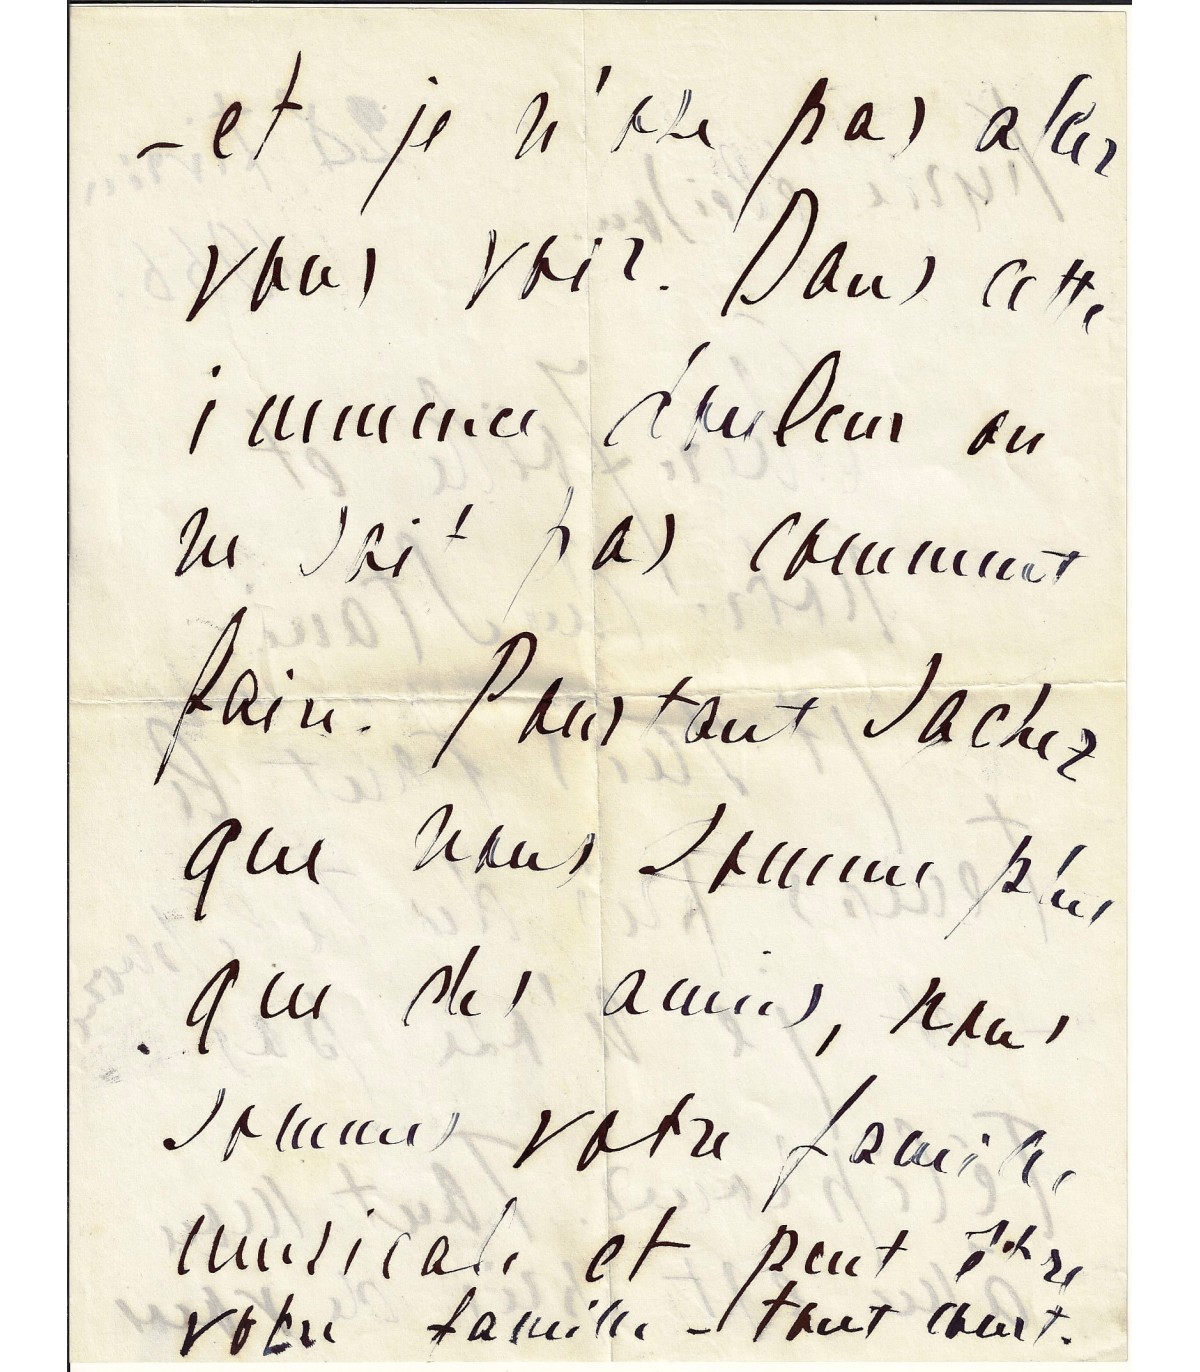 – et je n'ose pas aller
vous voir. Dans cette
immense douleur on
ne sait pas comment
faire. Pourtant sachez
que nous sommes plus
que des amis, nous
sommes votre famille
musicale et peut être
votre famille – tout court.